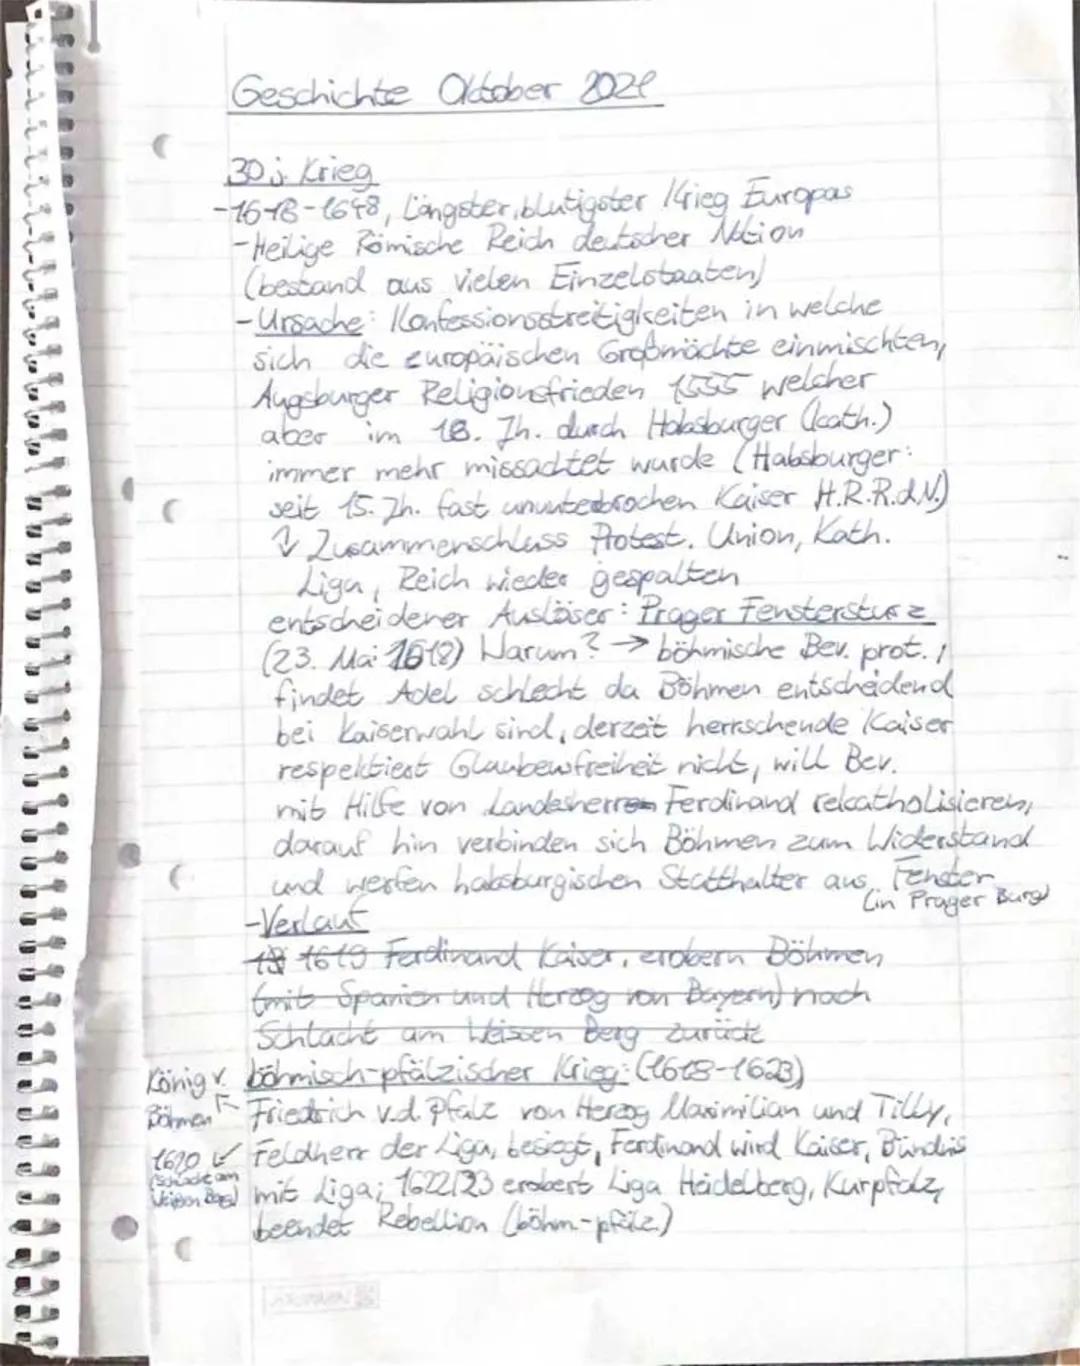 Geschichte Oktober 202
30 j. Krieg
-1618-1648, Längster, blutigster Krieg Europas
-Heilige Römische Reich deutscher Nation
(bestand aus vielen Einzelstaaten)
-Ursache: Konfessionsstreitigkeiten in welche
sich die europäischen Großmächte einmischten,
Augsburger Religionsfrieden 1555 welcher
aber im 18. Jh. durch Habsburger (kath.)
immer mehr missachtet wurde (Habsburger:
seit 15. Jh. fast ununterbrochen Kaiser H.R.R.d.N.)
↳ Zusammenschluss Protest. Union, Kath.
Liga, Reich wieder gespalten
entscheidener Auslöser: Prager Fenstersturz
(23. Mai 1618) Warum? → böhmische Bev. prot.,
findet Adel schlecht da Böhmen entscheidend
bei Kaiserwahl sind, derzeit herrschende Kaiser
respektiert Glaubensfreiheit nicht, will Bev.
mit Hilfe von Landesherren Ferdinand rekatholisieren,
darauf hin verbinden sich Böhmen zum Widerstand
und werfen habsburgischen Statthalter aus Fenster
(in Prager Burg)
-Verlauf
18 1619 Ferdinand Kaiser, erobern Böhmen
(mit Spanien und Herzog von Bayern) nach
Schlacht am Weissen Berg zurück
König v. böhmisch-pfälzischer Krieg: (1618-1623)
Böhmen ↖ Friedrich v.d. Pfalz von Herzog Maximilian und Tilly,
1620 ↙ Feldherr der Liga, besiegt, Ferdinand wird Kaiser, Bündnis
(Schlacht am
Weißen Berg) mit Liga; 1622/23 erobert Liga Heidelberg, Kurpfalz,
beendet Rebellion (böhm-pfälz.)